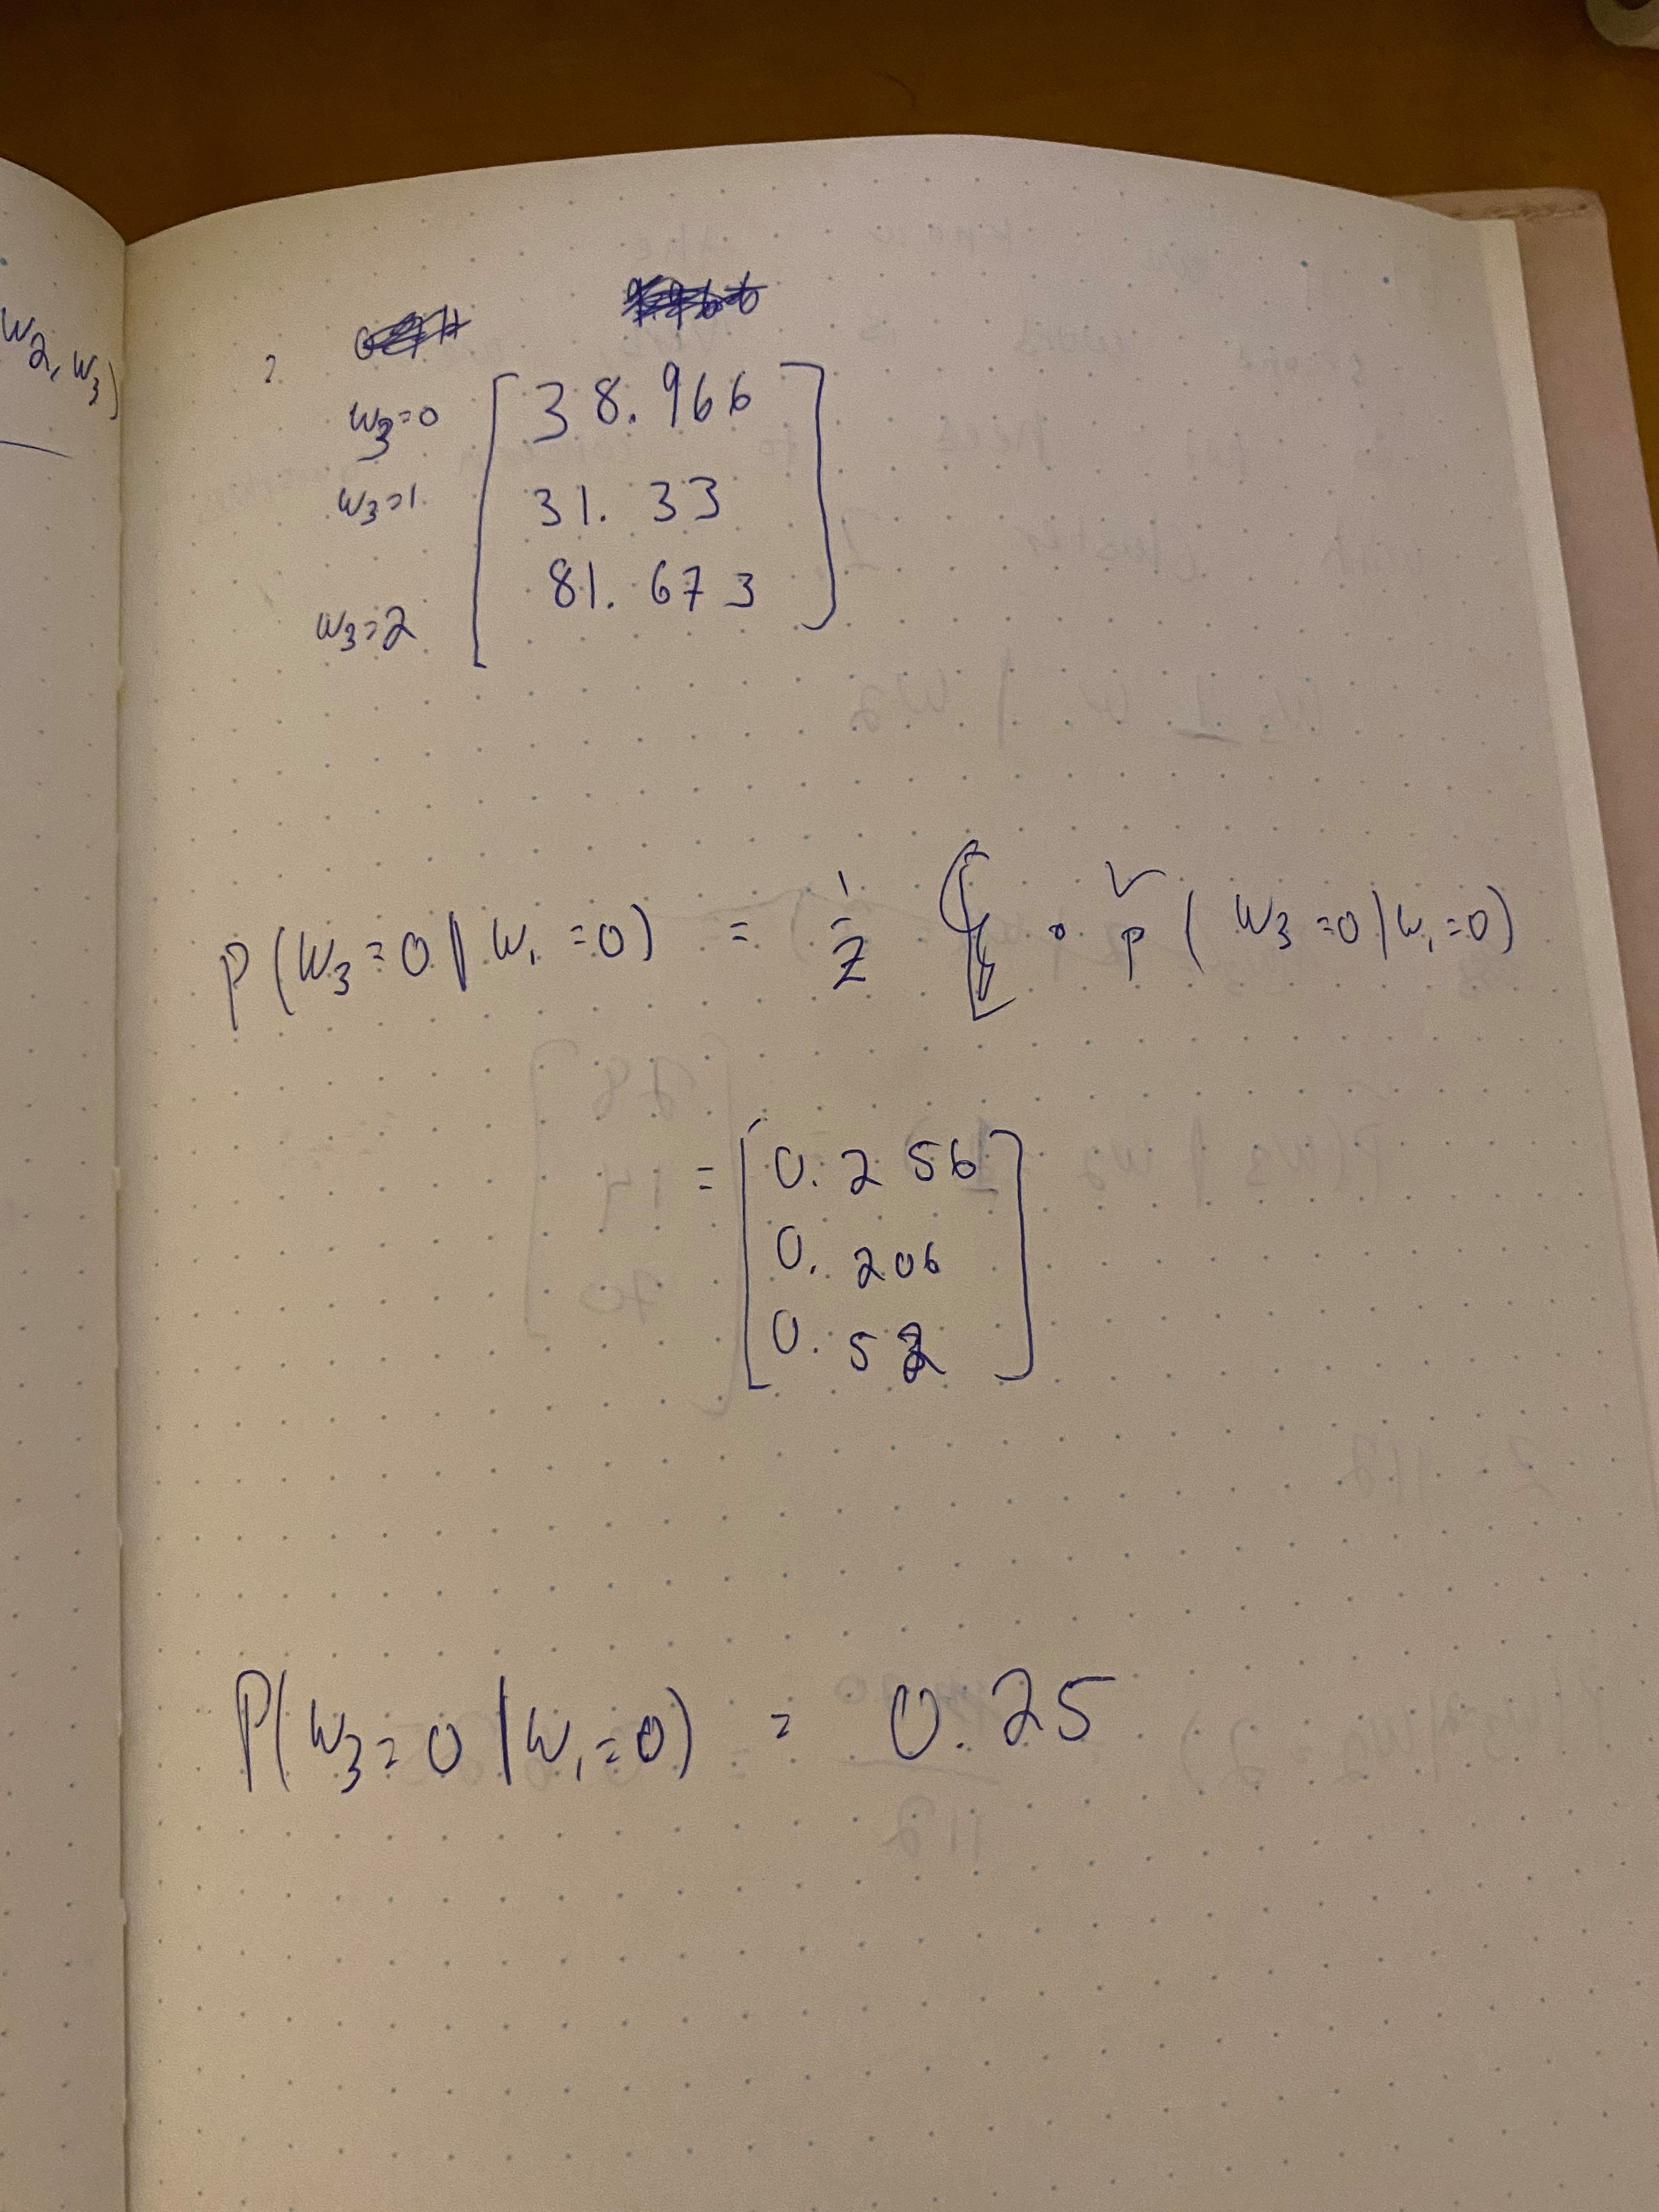 w2, w3)
w3=0 [ 38.966 ]
w3=1 31.33
w3=2 81.673
P(w3=0 | w1=0) = 1/Z · p̌(w3=0|w1=0)
= [ 0.256 ]
0.206
0.52
P(w3=0 | w1=0) = 0.25